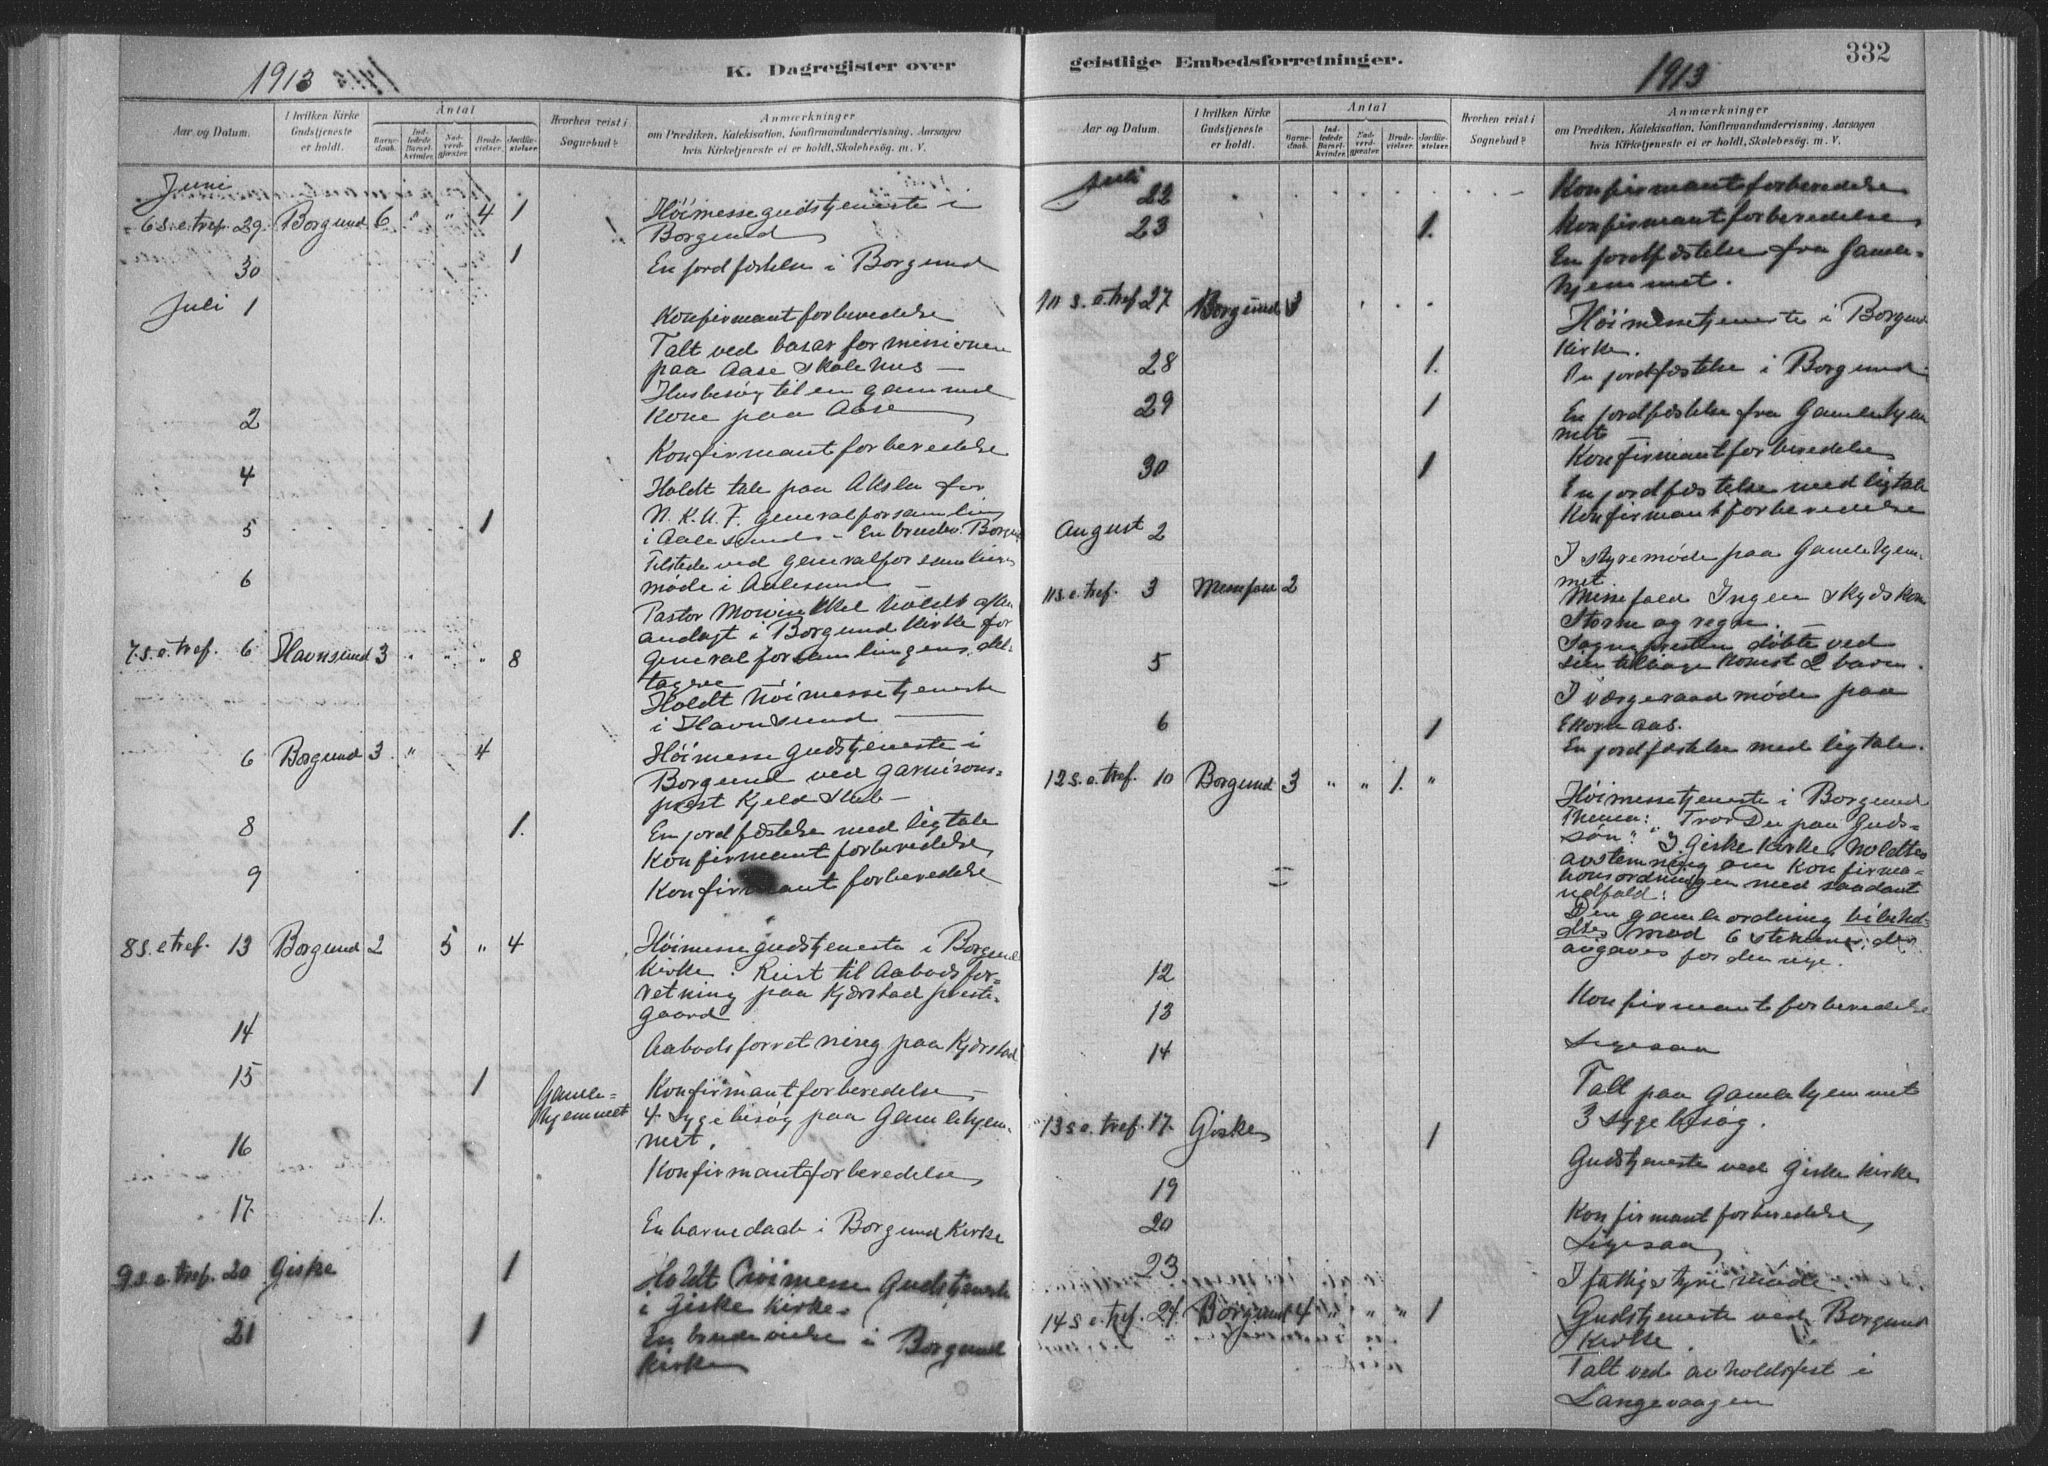 1913
K. Dagregister over
Aar og Datum.
I hvilken Kirke Gudstjeneste er holdt.
Antal
Barnedaab.
Indledede Barselkvinder.
Nadverdgjæster.
Brudevielser.
Jordfæstelser.
Hvorhen reist i Sognebud?
Anmærkninger
om Prædiken, Katekisation, Konfirmandundervisning, Aarsagen
hvis Kirketjeneste ei er holdt, Skolebesøg. m. V.
Juni
6 s. e. tref. 29. Borgund 6 " " 4 1 Höimessegudstjeneste i
Borgund
30 1 En jordfæstelse i Borgund
Juli 1 Konfirmantforberedelse
Talt ved basar for missionen
paa Aase skolehus —
Husbesøg til en gammel
2 Kone paa Aase
Konfirmantforberedelse
4 Holdt tale paa Aksla for
N. K. U. F. generalforsamling
5 1 i Aalesund - En brudev. Borgund
Tilstede ved generalforsamlings
6 møde i Aalesund —
Pastor Mowinkkel holdt aften
andagt i Borgund Kirke for
7. s. e. tref. 6 Havnsund 3 " " " 8 generalforsamlingens del-
tagere
Holdt höimessetjeneste
i Havnsund —
6 Borgund 3 " 4 Höimesse gudstjeneste i
Borgund ved garnisons-
prest Kjeld Stub —
8 1. En jordfæstelse med ligtale
Konfirmantforberedelse
9 Konfirmantforberedelse
8 s. e. tref. 13 Borgund 2 5 " 4 Höimessegudstjeneste i Borgund
Kirke. Reist til Aabodsfor-
retning paa Kjærstad preste-
gaard
14 Aabodsforretning paa Kjærstad
15 1 Gamle-
hjemmet
Konfirmantforberedelse —
4 sygebesøg paa Gamlehjem-
met.
16 Konfirmantforberedelse
17. 1. En barnedaab i Borgund Kirke
9 s. e. tref. 20 Giske 1 Holdt höimesse Gudstjeneste
i Giske Kirke.
21 1 En brudevielse i Borgund
Kirke
geistlige Embedsforretninger.
1913
332
Aar og Datum.
I hvilken Kirke Gudstjeneste er holdt.
Antal
Barnedaab.
Indledede Barselkvinder.
Nadverdgjæster.
Brudevielser.
Jordfæstelser.
Hvorhen reist i Sognebud?
Anmærkninger
om Prædiken, Katekisation, Konfirmandundervisning, Aarsagen
hvis Kirketjeneste ei er holdt, Skolebesøg. m. V.
Juli 22 Konfirmantforberedelse
23 1. Konfirmantforberedelse
En jordfæstelse fra Gamle-
hjemmet.
10 s. e. tref 27 Borgund 3 Höimessetjeneste i Borgund
Kirke.
28 1. En jordfæstelse i Borgund
29 1 En jordfæstelse fra Gamlehjem
met
Konfirmantforberedelse
30 1 En jordfæstelse med ligtale
Konfirmantforberedelse
August 2 I styremøde paa Gamlehjem-
met
11 s. e. tref. 3 Messefald 2 Messefald Ingen skyds kom
Storm og regn. —
Sognepresten döbte ved
sin tilbagekomst 2 barn.
5 I værgeraadmøde paa
Ekornaas.
6 1 En jordfæstelse med ligtale.
12 s. e. tref. 10 Borgund 3 " " 1. " Höimessetjeneste i Borgund
Thema: "Tror Du paa Guds-
søn" I Giske Kirke holdtes
avstemning om Konfirma-
tionsordningen med saadant
udfald:
Den gamle ordning bibehol-
dtes mod 6 stemmer, der
avgaves for den nye.
12 Konfirmantforberedelse
13 Ligesaa
14 Talt paa Gamlehjemmet
3 sygebesøg.
13 s. e. tref. 17. Giske 1 Gudstjeneste ved Giske Kirke
19 Konfirmantforberedelse
20 Ligesaa
23 I fattigstyremøde
14 s. e. tref. 24 Borgund 4 " " " 1 Gudstjeneste ved Borgund
Kirke.
Talt ved avholdsfest i
Langevaagen